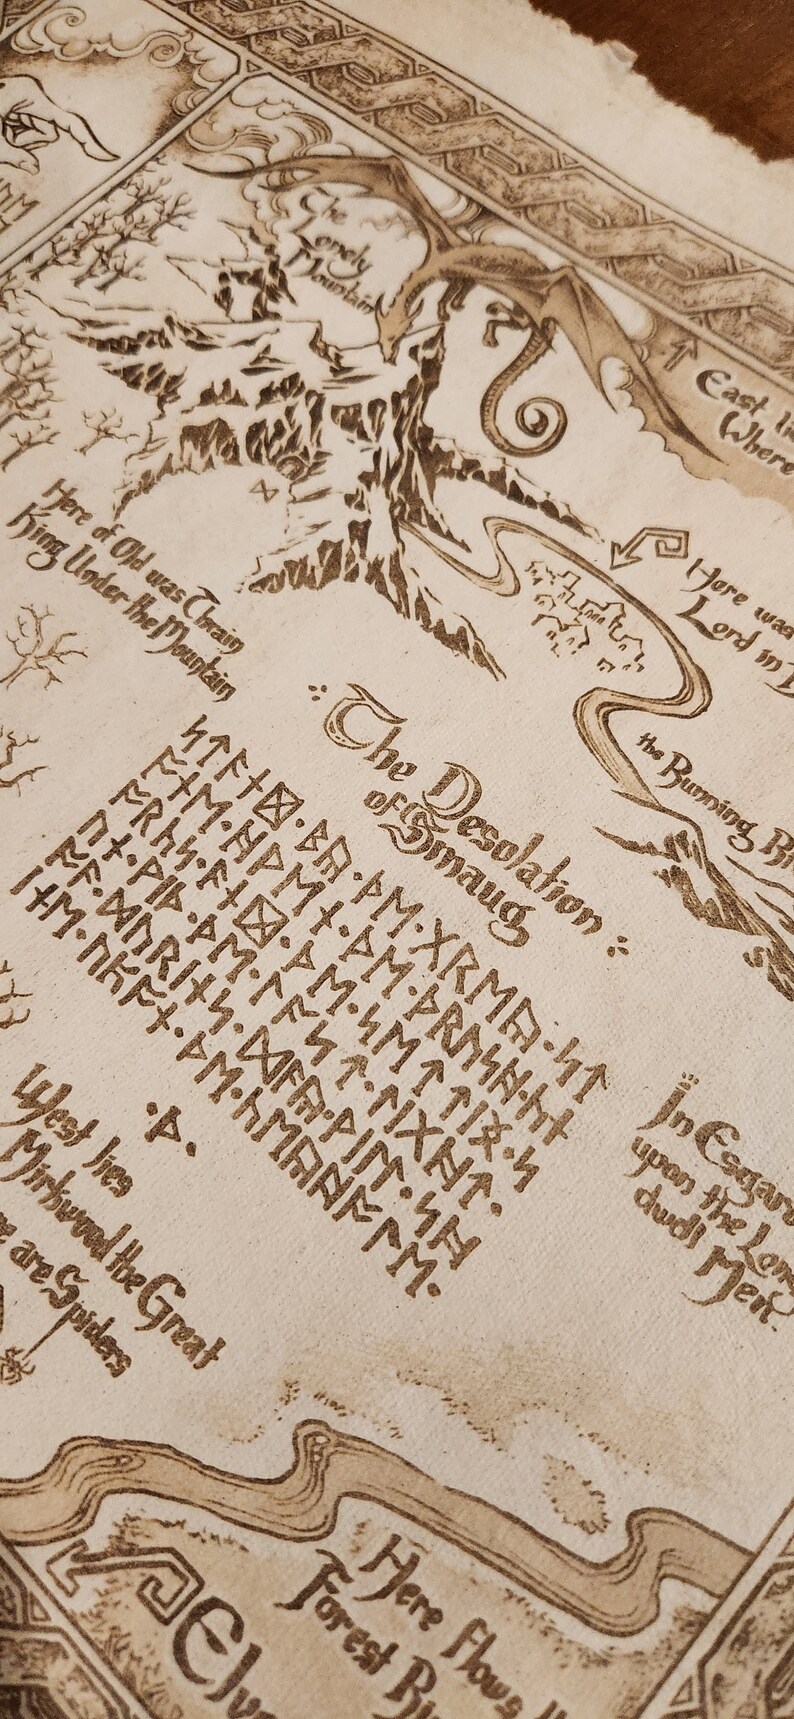 The
Lonely
Mountain
East li
Where
Here of Old was Thrain
King Under the Mountain
Here was
Lord in D
the Running Ri
The Desolation
of Smaug
ᛋᛏᚪᚾᛞ·ᛒᚣ·ᚦᛖ·ᚷᚱᛖᚣ·ᛋᛏ
ᚩᚾᛖ·ᚻᚹᛖᚾ·ᚦᛖ·ᚦᚱᚢᛋᚻ·ᚳᚾ
ᚩᚳᛋ·ᚪᚾᛞ·ᚦᛖ·ᛋᛖᛏᛏᛁᛝ·ᛋ
ᚢᚾ·ᚹᛁᚦ·ᚦᛖ·ᛚᚪᛋᛏ·ᛚᛁᚷᚻᛏ·
ᚩᚠ·ᛞᚢᚱᛁᚾᛋ·ᛞᚪᚣ·ᚹᛁᛚᛚ·ᛋᚻ
ᛁᚾᛖ·ᚢᛈᚩᚾ·ᚦᛖ·ᚳᛖᚣᚻᚩᛚᛖ·
·ᚦ·
In Esgaro
upon the Long
dwell Men
West lies
Mirkwood the Great
are Spiders
Here flows
Forest Ri
Elve